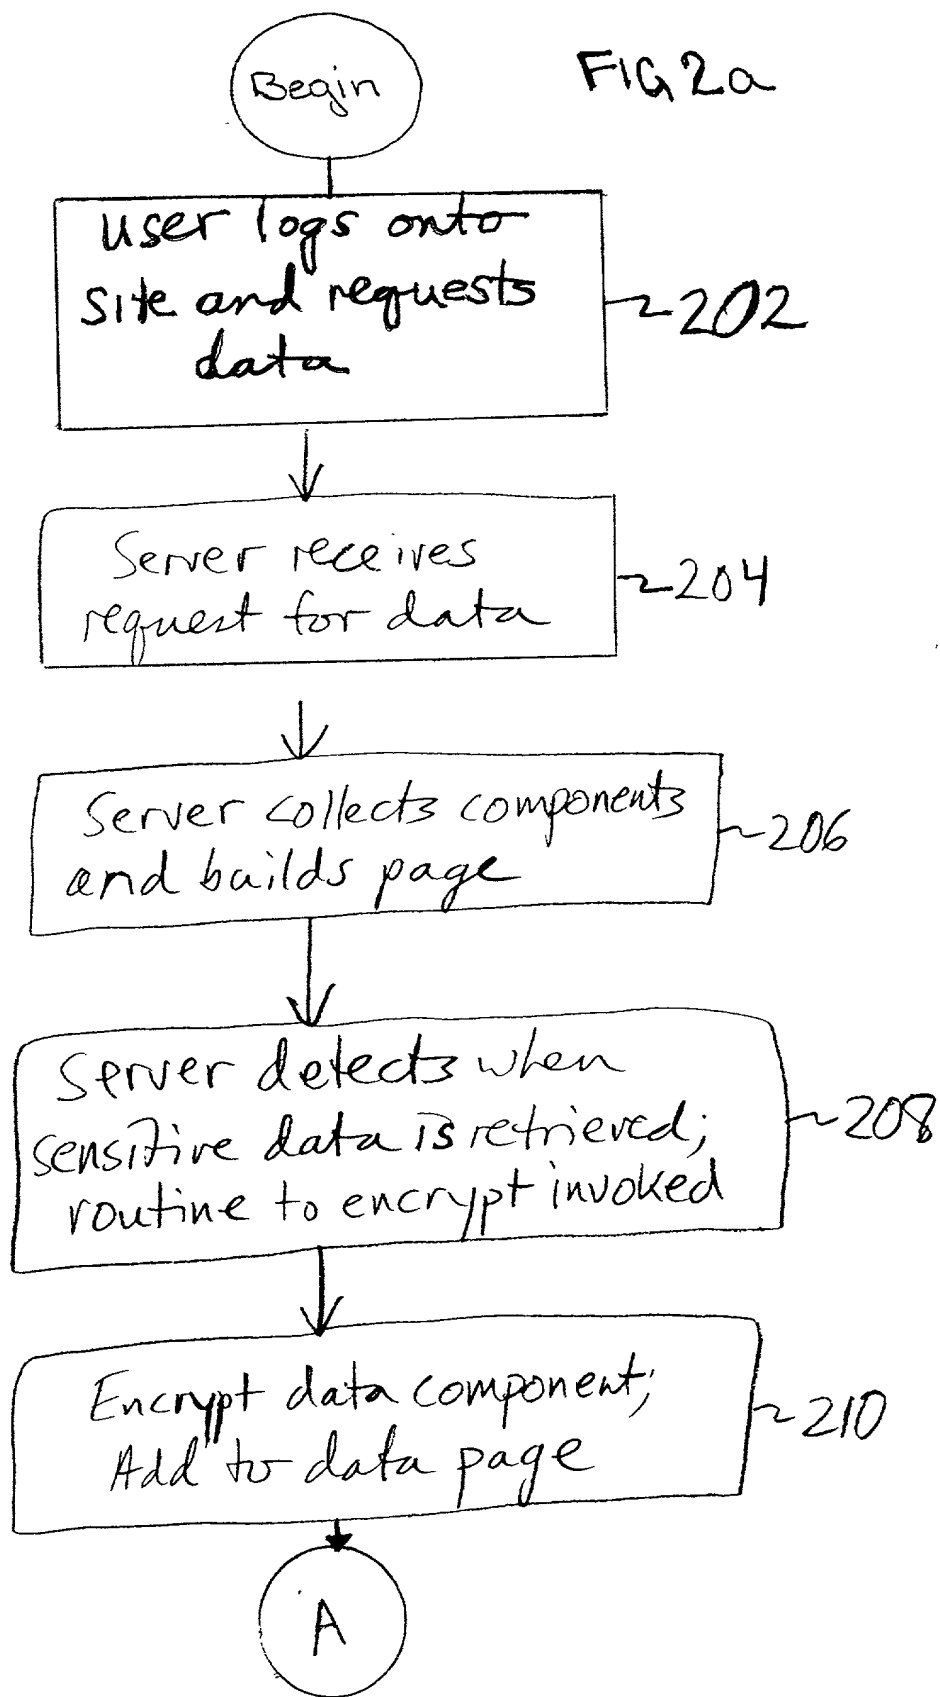 Begin
FIG 2a
user logs onto
site and requests
data
202
Server receives
request for data
204
Server collects components
and builds page
206
Server detects when
sensitive data is retrieved;
routine to encrypt invoked
208
Encrypt data component;
Add to data page
210
A